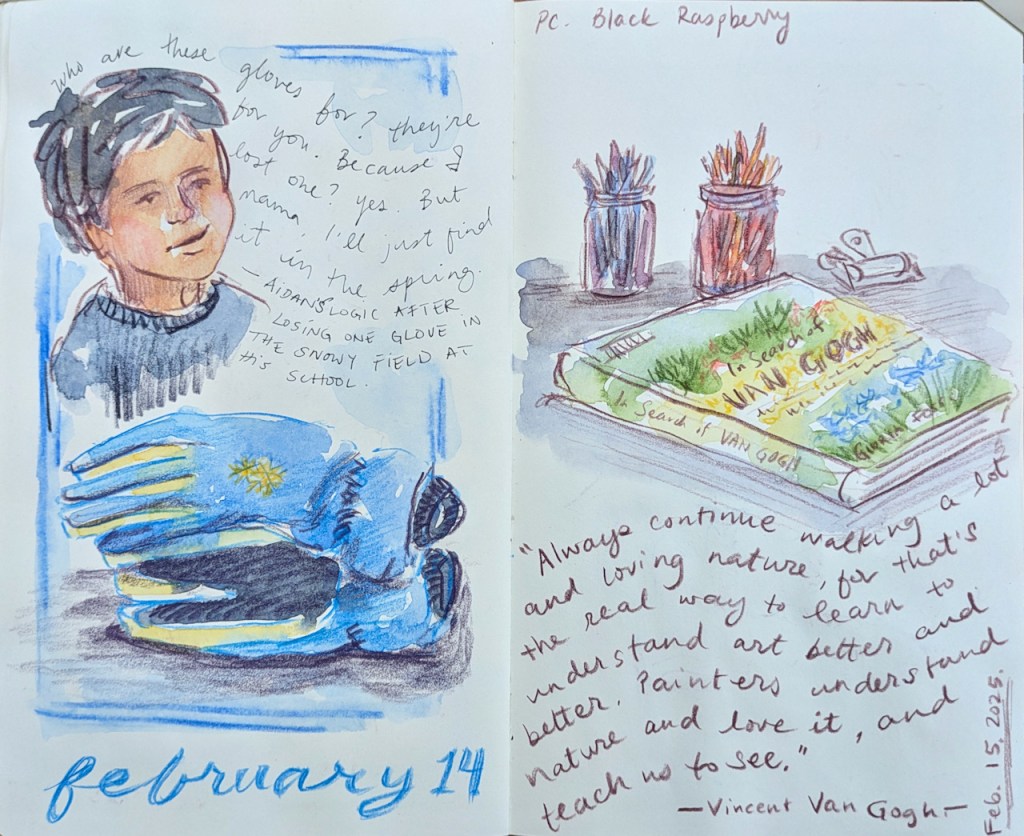 who are these
gloves for? they're
for you. Because I
lost one? yes. But
mama, I'll just find
it in the spring.
— AiDAN'S LOGIC AFTER
LOSING ONE GLOVE IN
THE SNOWY FIELD AT
HIS SCHOOL.
february 14
PC. Black Raspberry
In Search of
VAN GOGH
In Search of VAN GOGH
"Always continue walking a lot
and loving nature, for that's
the real way to learn to
understand art better and
better. Painters understand
nature and love it, and
teach us to see."
— Vincent Van Gogh —
Feb. 15, 2025.